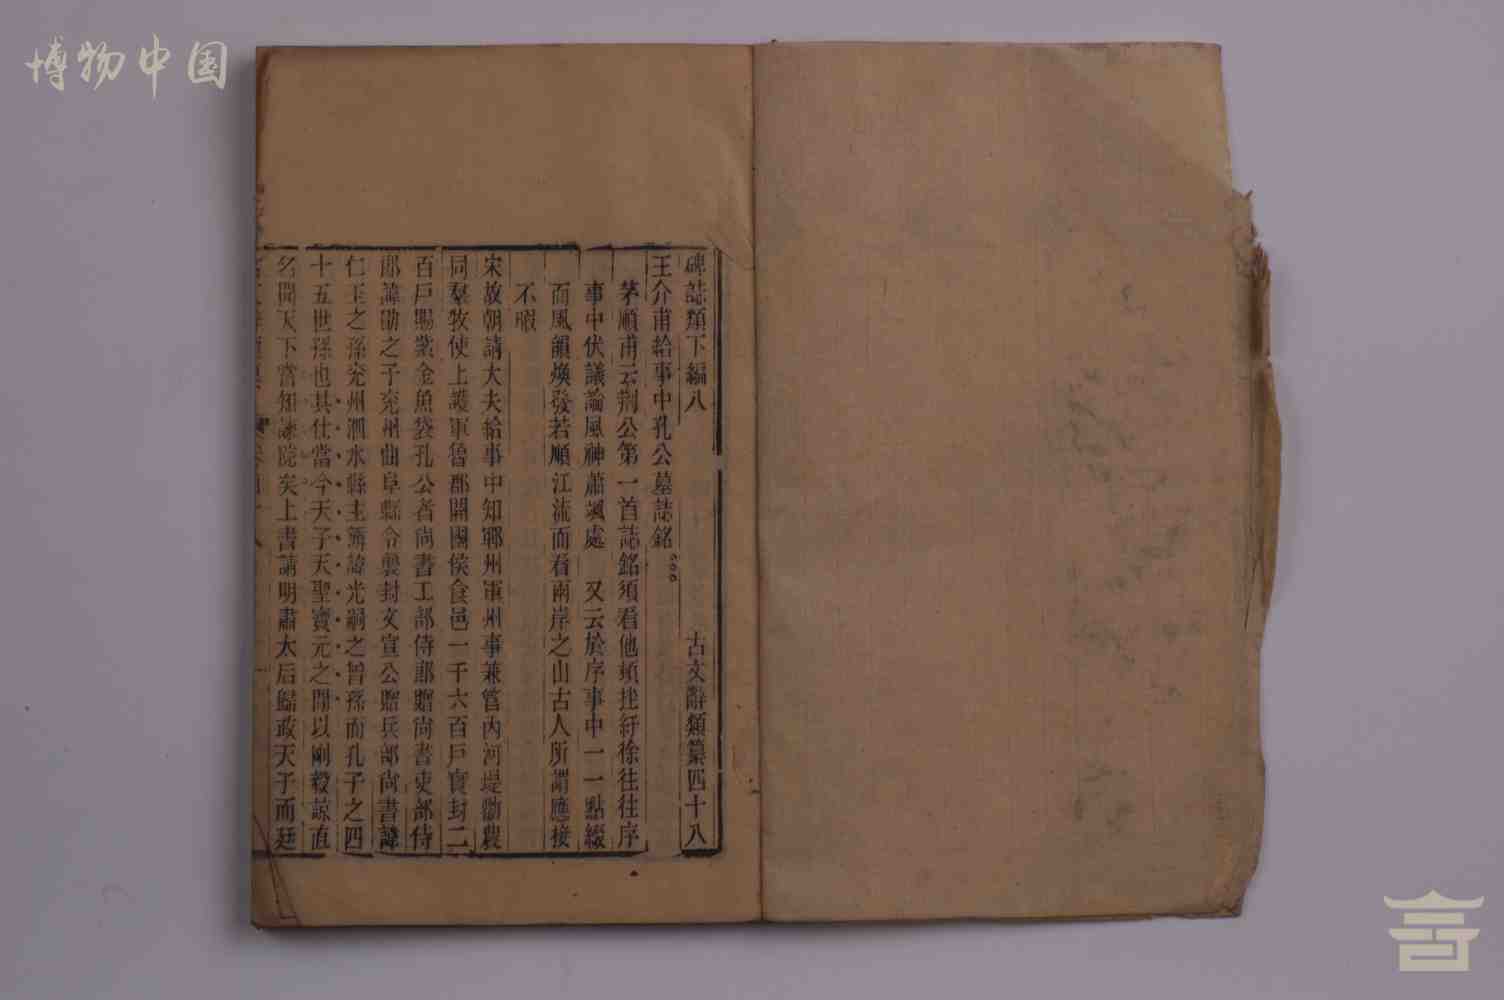 博物中国
碑誌類下編八　古文辭類纂四十八
王介甫給事中孔公墓誌銘○○○
茅順甫云荆公第一首誌銘須看他頓挫紆徐往往序
事中伏議論風神蕭颯處　又云於序事中一一點綴
而風韻煥發若順江流而看兩岸之山古人所謂應接
不暇
宋故朝請大夫給事中知鄆州軍州事兼管內河堤勸農
同羣牧使上護軍魯郡開國侯食邑一千六百戶實封二
百戶賜紫金魚袋孔公者尚書工部侍郎贈尚書吏部侍
郎諱勖之子兖州曲阜縣令襲封文宣公贈兵部尚書諱
仁玉之孫兖州泗水縣主簿諱光嗣之曾孫而孔子之四
十五世孫也其仕當今天子天聖寶元之閒以剛毅諒直
名聞天下嘗知諫院矣上書請明肅太后歸政天子而廷